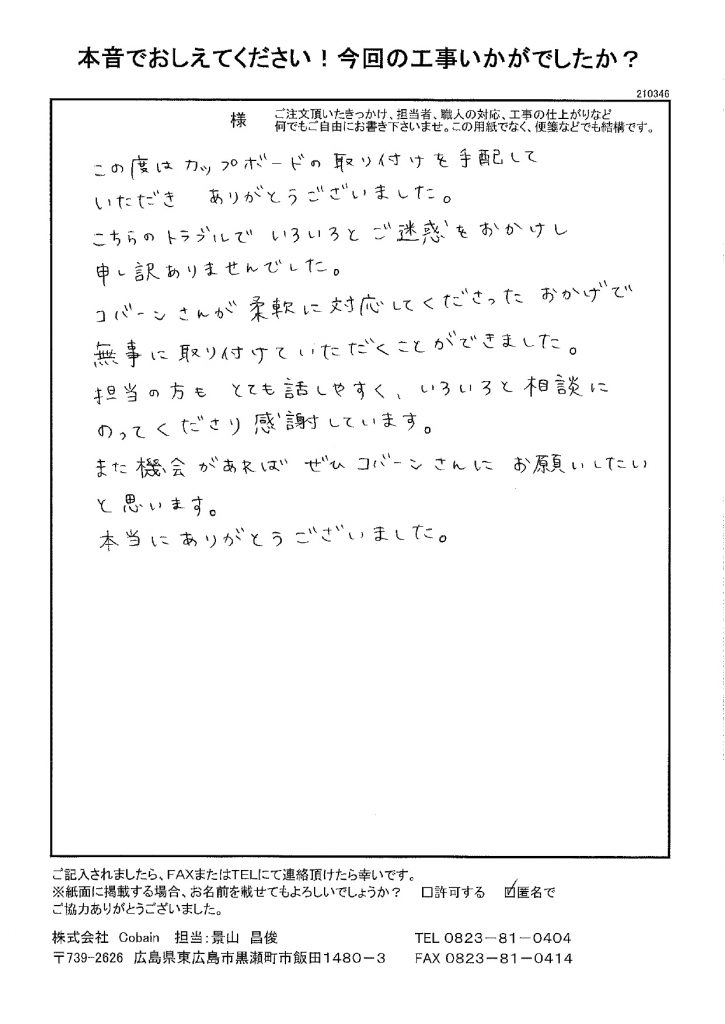 本音でおしえてください！今回の工事いかがでしたか？
210346
様
ご注文頂いたきっかけ、担当者、職人の対応、工事の仕上がりなど
何でもご自由にお書き下さいませ。この用紙でなく、便箋などでも結構です。
この度はカップボードの取り付けを手配して
いただき ありがとうございました。
こちらのトラブルで いろいろとご迷惑をおかけし
申し訳ありませんでした。
コバーンさんが柔軟に対応してくださったおかげで
無事に取り付けていただくことができました。
担当の方も とても話しやすく、いろいろと相談に
のってくださり感謝しています。
また機会があれば ぜひコバーンさんに お願いしたい
と思います。
本当にありがとうございました。
ご記入されましたら、FAXまたはTELにて連絡頂けたら幸いです。
※紙面に掲載する場合、お名前を載せてもよろしいでしょうか？ □許可する ☑匿名で
ご協力ありがとうございました。
株式会社 Cobain 担当：景山 昌俊 TEL 0823－81－0404
〒739-2626 広島県東広島市黒瀬町市飯田1480－3 FAX 0823－81－0414